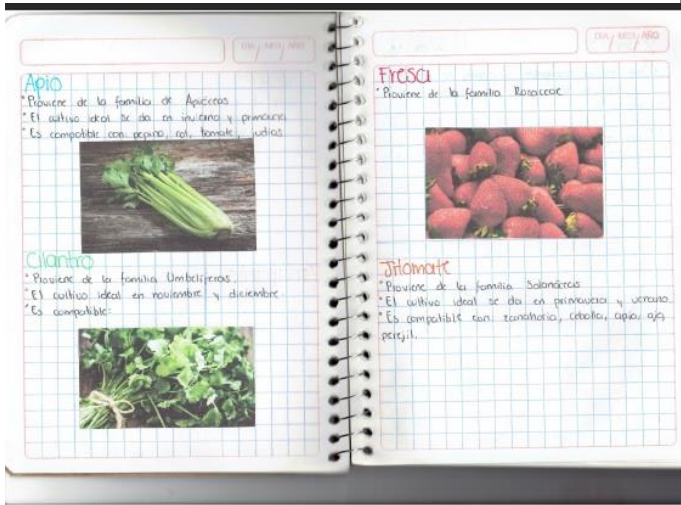 DIA/ MES/ AÑO
Apio
* Proviene de la familia de Apiáceas
* El cultivo ideal se da en invierno y primavera
* Es compatible con pepino, col, tomate, judías
Cilantro
* Proviene de la familia Umbelíferas.
* El cultivo ideal en noviembre y diciembre
* Es compatible:
DIA/ MES/ AÑO
Fresa
* Proviene de la familia Rosaceae
Jitomate
* Proviene de la familia Solanáceas
* El cultivo ideal se da en primavera y verano.
* Es compatible con: zanahoria, cebolla, apio, ajo,
perejil.